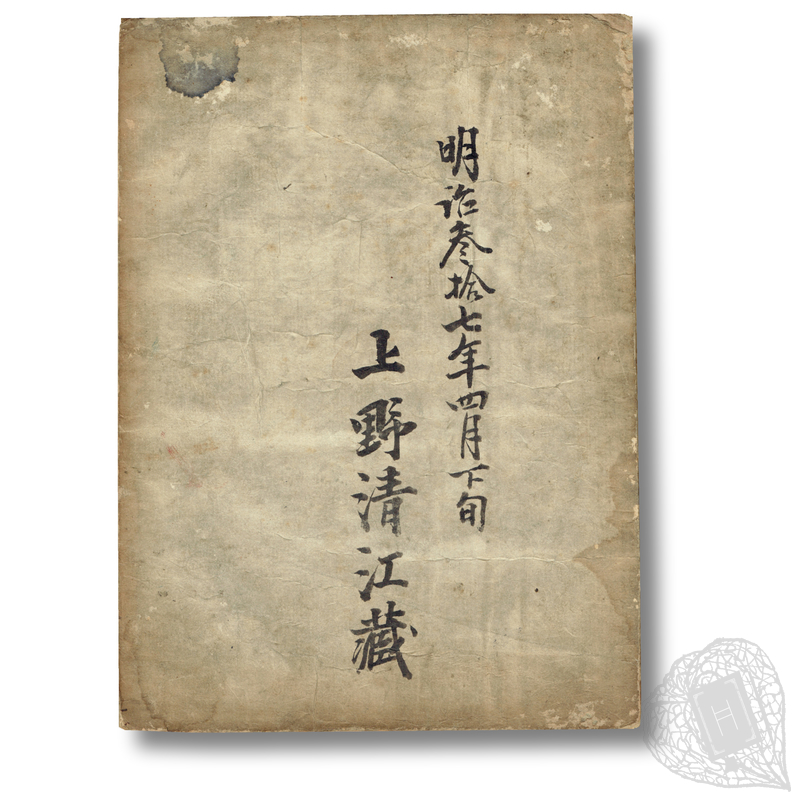 明治叄拾七年四月下旬
上野清江藏
H